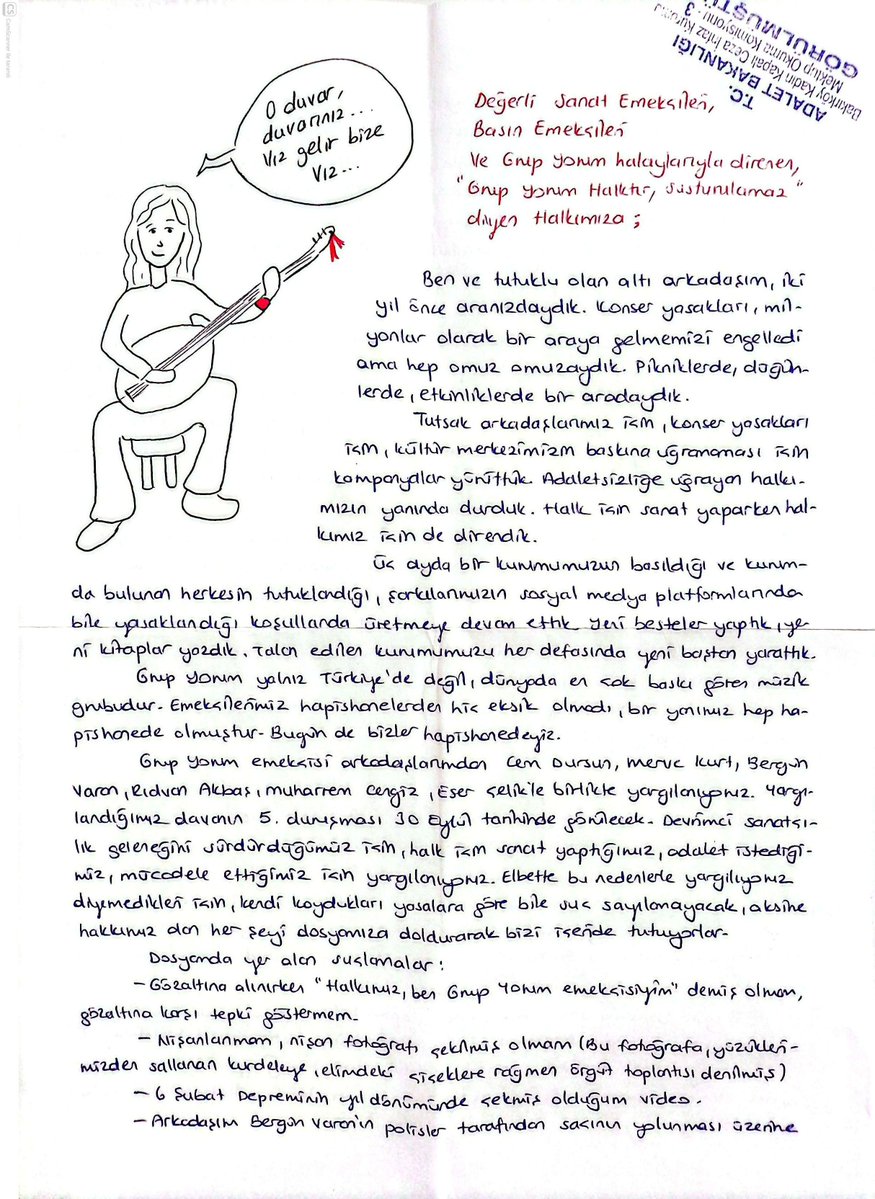 CS
CamScanner ile tarandı
T.C.
ADALET BAKANLIĞI
Bakırköy Kadın Kapalı Ceza İnfaz Kurumu
Mektup Okuma Komisyonu - 3
GÖRÜLMÜŞTÜR
O duvar,
duvarınız...
Vız gelir bize
Vız...
Değerli Sanat Emekçileri,
Basın Emekçileri
Ve Grup Yorum halaylarıyla direnen,
"Grup Yorum Halktır, Susturulamaz"
diyen Halkımıza;
Ben ve tutuklu olan altı arkadaşım, iki
yıl önce aranızdaydık. Konser yasakları, mil-
yonlar olarak bir araya gelmemizi engelledi
ama hep omuz omuzaydık. Pikniklerde, düğün-
lerde, etkinliklerde bir aradaydık.
Tutsak arkadaşlarımız için, konser yasakları
için, kültür merkezimizin baskına uğramaması için
kampanyalar yürüttük. Adaletsizliğe uğrayan halkı-
mızın yanında durduk. Halk için sanat yaparken hal-
kımız için de direndik.
Üç ayda bir kurumumuzun basıldığı ve kurum-
da bulunan herkesin tutuklandığı, şarkılarımızın sosyal medya platformlarında
bile yasaklandığı koşullarda üretmeye devam ettik. Yeni besteler yaptık, ye-
ni kitaplar yazdık. Talan edilen kurumumuzu her defasında yeni baştan yarattık.
Grup Yorum yalnız Türkiye'de değil, dünyada en çok baskı gören müzik
grubudur. Emekçilerimiz hapishanelerden hiç eksik olmadı, bir yanımız hep ha-
pishanede olmuştur. Bugün de bizler hapishanedeyiz.
Grup Yorum emekçisi arkadaşlarımdan Cem Dursun, Merve Kurt, Bergün
Varan, Rıdvan Akbaş, Muharrem Cengiz, Eser Çelik'le birlikte yargılanıyoruz. Yargı-
landığımız davanın 5. duruşması 30 Eylül tarihinde görülecek. Devrimci sanatçı-
lık geleneğini sürdürdüğümüz için, halk için sanat yaptığımız, adalet istediği-
miz, mücadele ettiğimiz için yargılanıyoruz. Elbette bu nedenlerle yargılıyoruz
diyemedikleri için, kendi koydukları yasalara göre bile suç sayılamayacak, aksine
hakkımız olan her şeyi dosyamıza doldurarak bizi içeride tutuyorlar.
Dosyamda yer alan suçlamalar:
- Gözaltına alınırken "Halkımız, ben Grup Yorum emekçisiyim" demiş olmam,
gözaltına karşı tepki göstermem.
- Nişanlanmam, nişan fotoğrafı çekilmiş olmam (Bu fotoğrafa, yüzükleri-
mizden sallanan kurdeleye, elimdeki çiçeklere rağmen örgüt toplantısı denilmiş)
- 6 Şubat Depreminin yıl dönümünde çekmiş olduğum video.
- Arkadaşım Bergün Varan'ın polisler tarafından saçının yolunması üzerine